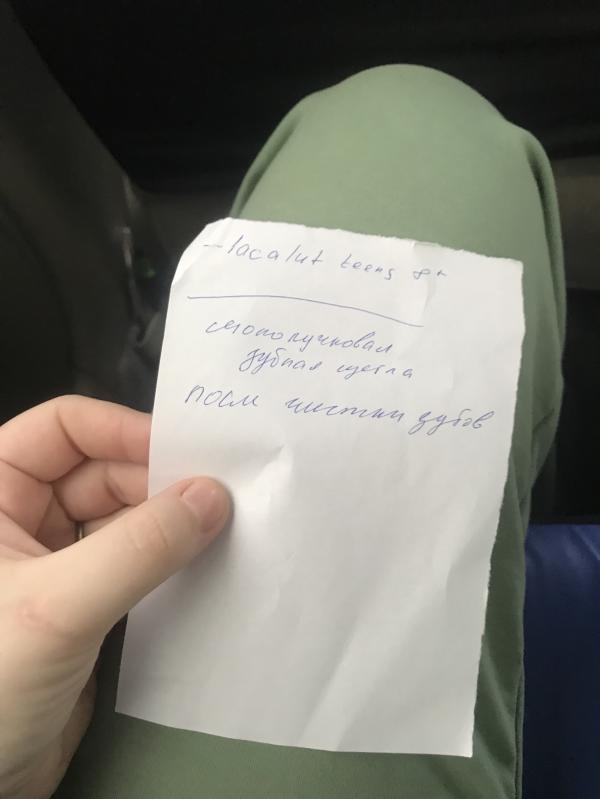 – lacalut teens 8+
монопучковая
зубная щетка
после чистки зубов